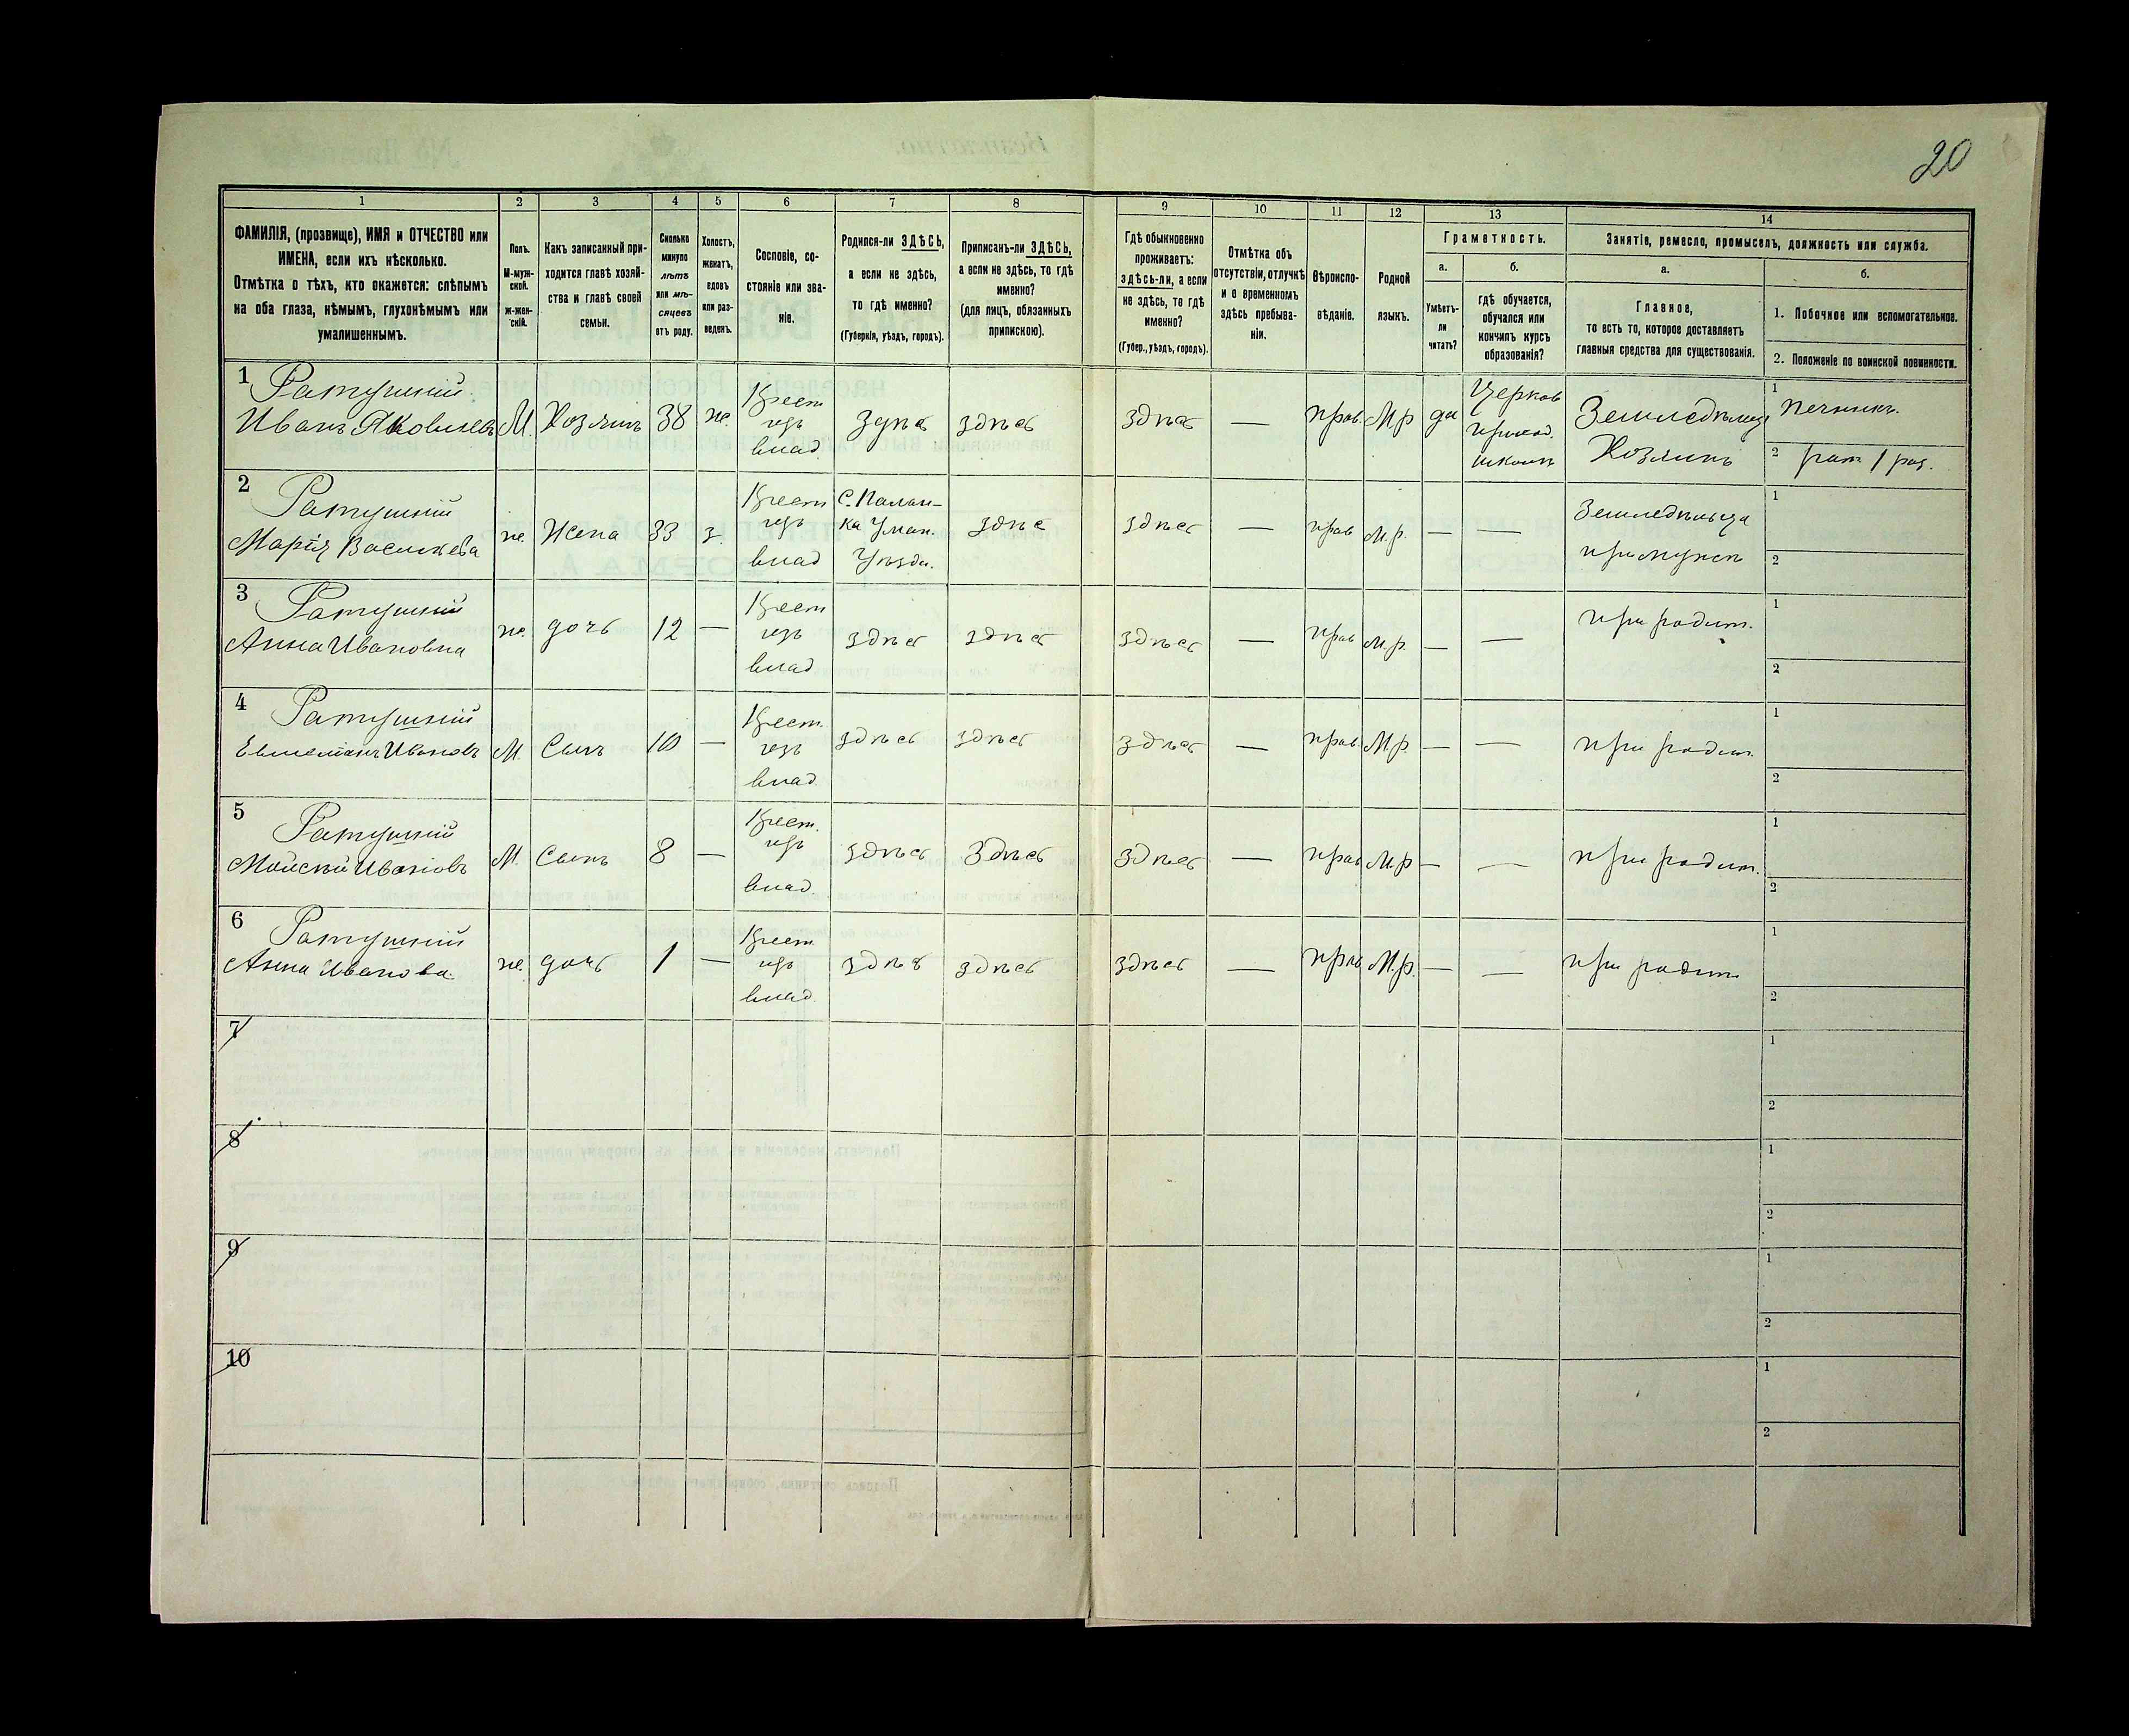 20
1 2 3 4 5 6 7 8 9 10 11 12 13 14
ФАМИЛІЯ, (прозвище), ИМЯ и ОТЧЕСТВО или
ИМЕНА, если ихъ нѣсколько.
Отмѣтка о тѣхъ, кто окажется: слѣпымъ
на оба глаза, нѣмымъ, глухонѣмымъ или
умалишеннымъ.
Полъ.
М-муж-
ской.
ж-жен-
скій.
Какъ записанный при-
ходится главѣ хозяй-
ства и главѣ своей
семьи.
Сколько
минуло
лѣтъ
или мѣ-
сяцевъ
отъ роду.
Холостъ,
женатъ,
вдовъ
или раз-
веденъ.
Сословіе, со-
стояніе или зва-
ніе.
Родился-ли ЗДѢСЬ,
а если не здѣсь,
то гдѣ именно?
(Губернія, уѣздъ, городъ).
Приписанъ-ли ЗДѢСЬ,
а если не здѣсь, то гдѣ
именно?
(для лицъ, обязанныхъ
припискою).
Гдѣ обыкновенно
проживаетъ:
здѣсь-ли, а если
не здѣсь, то гдѣ
именно?
(Губер., уѣздъ, городъ).
Отмѣтка объ
отсутствіи, отлучкѣ
и о временномъ
здѣсь пребыва-
ніи.
Вѣроиспо-
вѣданіе.
Родной
языкъ.
Грамотность.
а.
Умѣетъ-
ли
читать?
б.
гдѣ обучается,
обучался или
кончилъ курсъ
образованія?
Занятіе, ремесло, промыселъ, должность или служба.
а.
Главное,
то есть то, которое доставляетъ
главныя средства для существованія.
б.
1. Побочное или вспомогательное.
2. Положеніе по воинской повинности.
1 Ратушній
Иванъ Яковлевъ М. Хозяинъ 38 же.
Крест
изъ
влад.
здѣсь здѣсь здѣсь — прав. М.р да
Церков
приход.
школѣ
Земледѣлец
Хозяинъ
1 Печникъ.
2 рат. 1 раз.
2 Ратушній
Марія Васильева же. Жена 33 з.
Крест
изъ
влад
С. Палан-
ка Уман.
Уѣзда.
здѣс здѣсь — прав М.р. — —
Земледѣльца
при мужѣ
1
2
3 Ратушній
Анна Ивановна же. дочь 12 —
Крест
изъ
влад
здѣсь здѣсь здѣсь — прав М.р. — — при родит.
1
2
4 Ратушній
Ивановъ М. Сынъ 10 —
Крест.
изъ
влад.
здѣсь здѣсь здѣсь — прав. М.р. — — при родит.
1
2
5 Ратушній
Мойсей Ивановъ М. Сынъ 8 —
Крест.
изъ
влад.
здѣсь здѣсь здѣсь — прав М.р — — при родит.
1
2
6 Ратушній
Анна Иванова. же. дочь 1 —
Крест
изъ
влад.
здѣсь здѣсь здѣсь — прав М.р. — — при родит
1
2
7
1
2
8
1
2
9
1
2
10
1
2